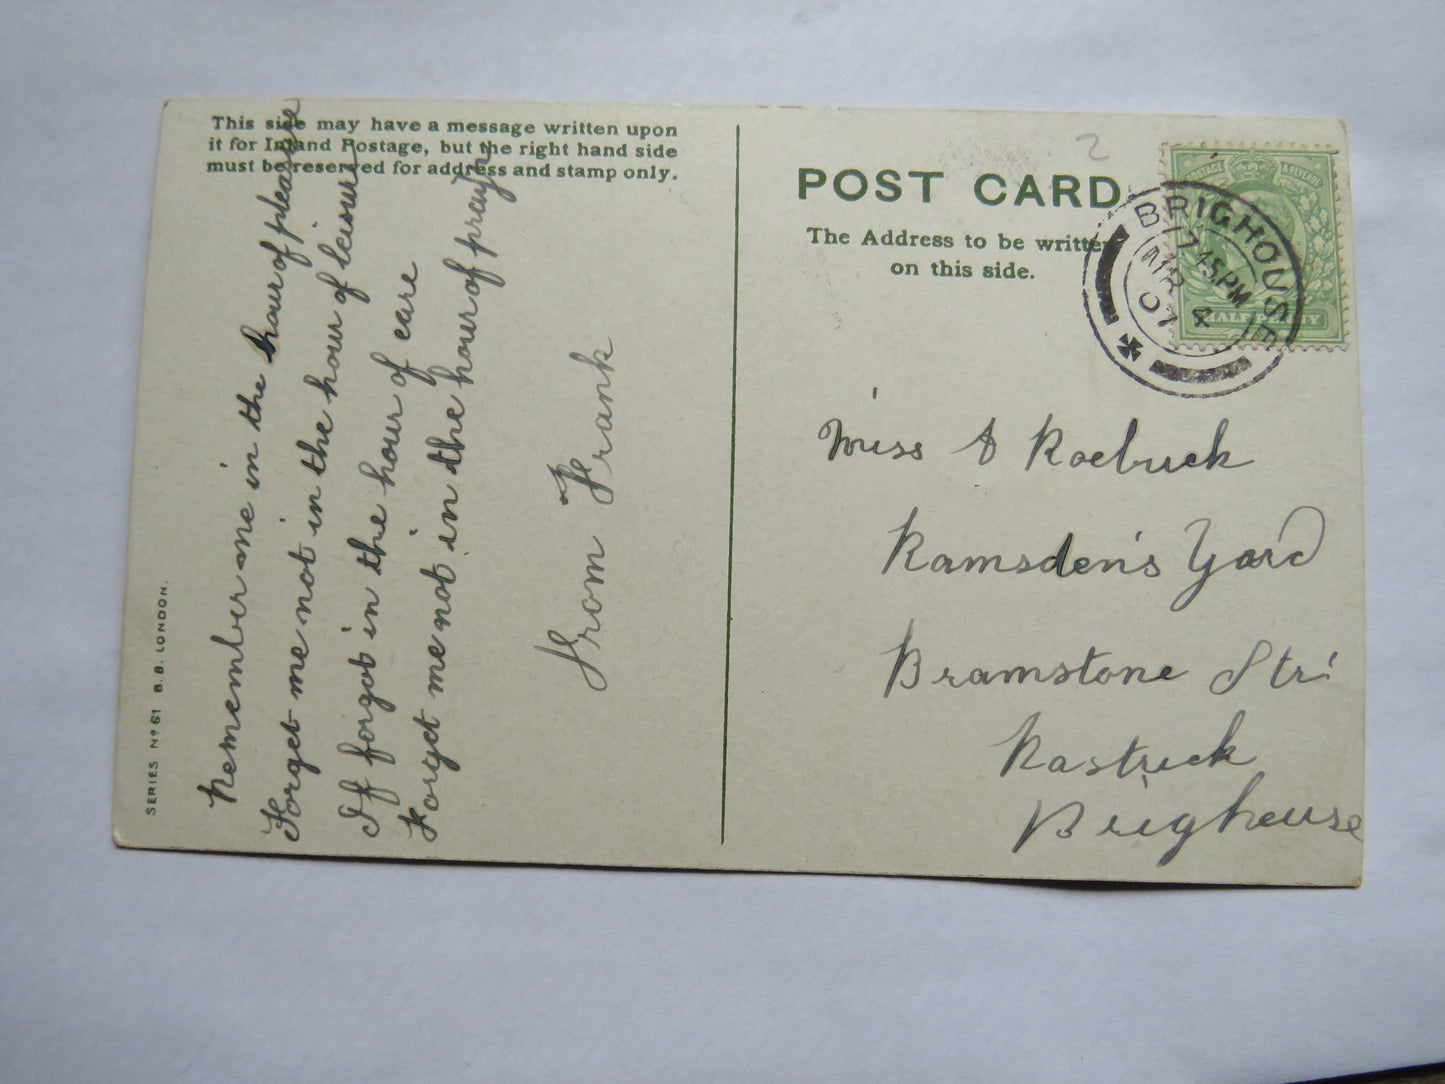 This side may have a message written upon
it for Inland Postage, but the right hand side
must be reserved for address and stamp only.
Remember me in the hour of pleasure
Forget me not in the hour of leisure
If forgot in the hour of care
Forget me not in the hour of prayer
From Frank
SERIES Nº 61 B. B. LONDON.
2
POST CARD
The Address to be written
on this side.
BRIGHOUSE
7.45PM
AP 4
07
POSTAGE & REVENUE
HALF PENNY
Miss A Roebuck
Ramsden's Yard
Bramstone Str!
Rastrick
Brighouse